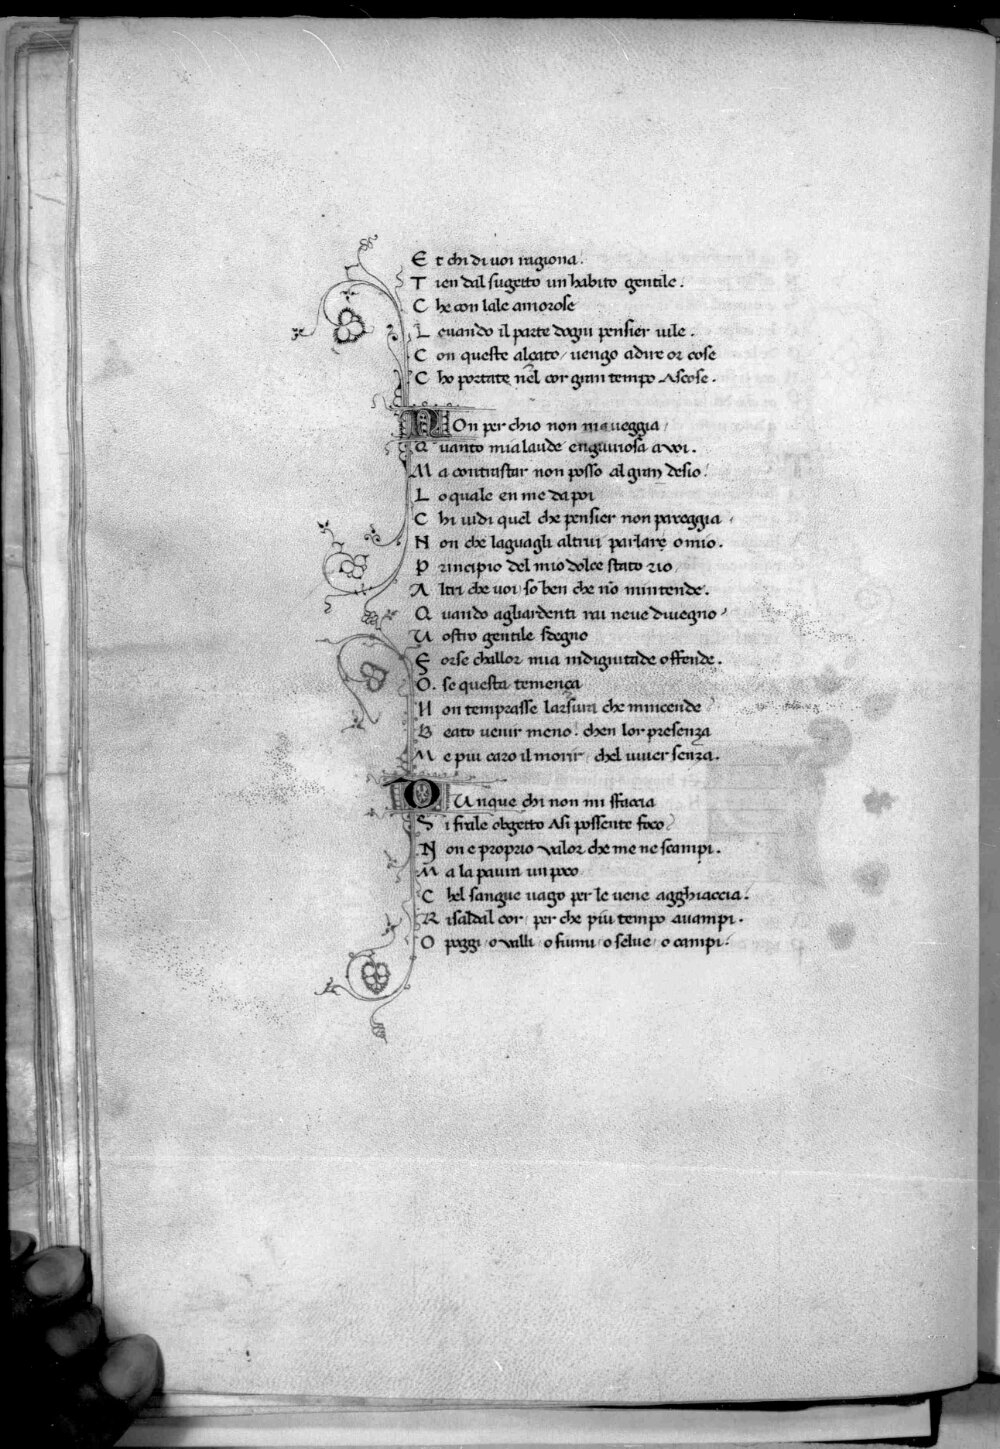 Et chi di uoi ragiona.
Tien dal sugetto un habito gentile.
Che con lale amorose
Leuando il parte dogni pensier uile.
Con queste alçato/ uengo adire or cose
Cho portate nel cor gran tempo Ascose.
NOn per chio non maueggia/
Quanto mia laude engiuriosa a uoi.
Ma contrastar non posso al gran desio.
Lo quale en me da poi
Chi uidi quel che pensier non pareggia
Non che laguagli altrui parlare o mio.
Principio del mio dolce stato rio
Altri che uoi/ so ben che nō mintende.
Quando agliardenti rai neue diuegno
Uostro gentile sdegno
Forse challor mia indignitade offende.
O. se questa temença
Non temprasse larsura che mincende
Beato uenir meno. chen lor presenza
Me piu caro il morir/ chel uiuer senza.
DUnque chi non mi sfaccia
Si frale obgetto Asi possente foco
Non e proprio ualor che me ne scampi.
Ma la paura un poco
Chel sangue uago per le uene agghiaccia.
Risaldal cor/ per che piu tempo auampi.
O poggi/ o ualli/ o fiumi/ o selue/ o campi.